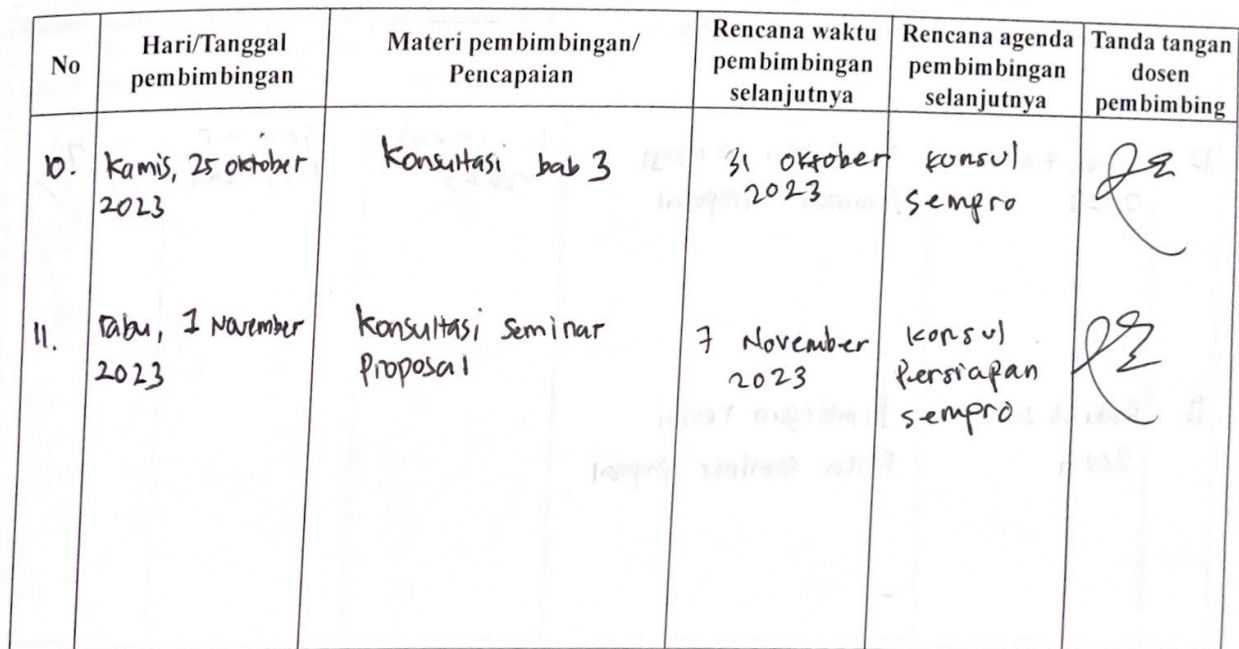 No
Hari/Tanggal
pembimbingan
Materi pembimbingan/
Pencapaian
Rencana waktu
pembimbingan
selanjutnya
Rencana agenda
pembimbingan
selanjutnya
Tanda tangan
dosen
pembimbing
10.
Kamis, 25 oktober
2023
Konsultasi bab 3
31 Oktober
2023
konsul
sempro
11.
rabu, 1 November
2023
Konsultasi Seminar
Proposal
7 November
2023
konsul
Persiapan
sempro